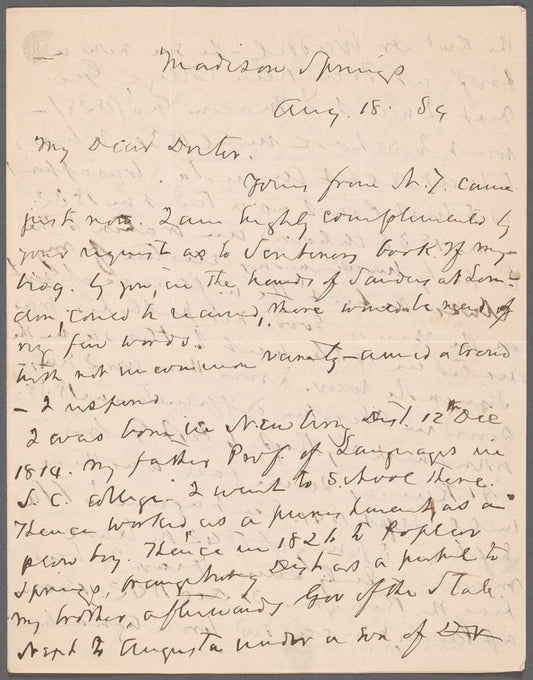 Madison Springs
Aug. 18. 89
My Dear Doctor.
Yours from N.Y. came
just now. I am highly complimented by
your request as to Scribners book. If my
biog. by you, in the hands of Sanders at Lon-
don, could be secured, there would be need of
very few words.
with not uncommon vanity - and a trend
- I respond.
I was born in Newberry Dist. 12th Dec
1814. My father Prof. of Languages in
S. C. College. I went to School there.
Thence worked as a punishment as a
plow boy. Thence in 1826 to Poplar
Springs, Orangeburg Dist as a pupil to
my brother, afterwards Gov of the State.
Next to Augusta under a son of Dr